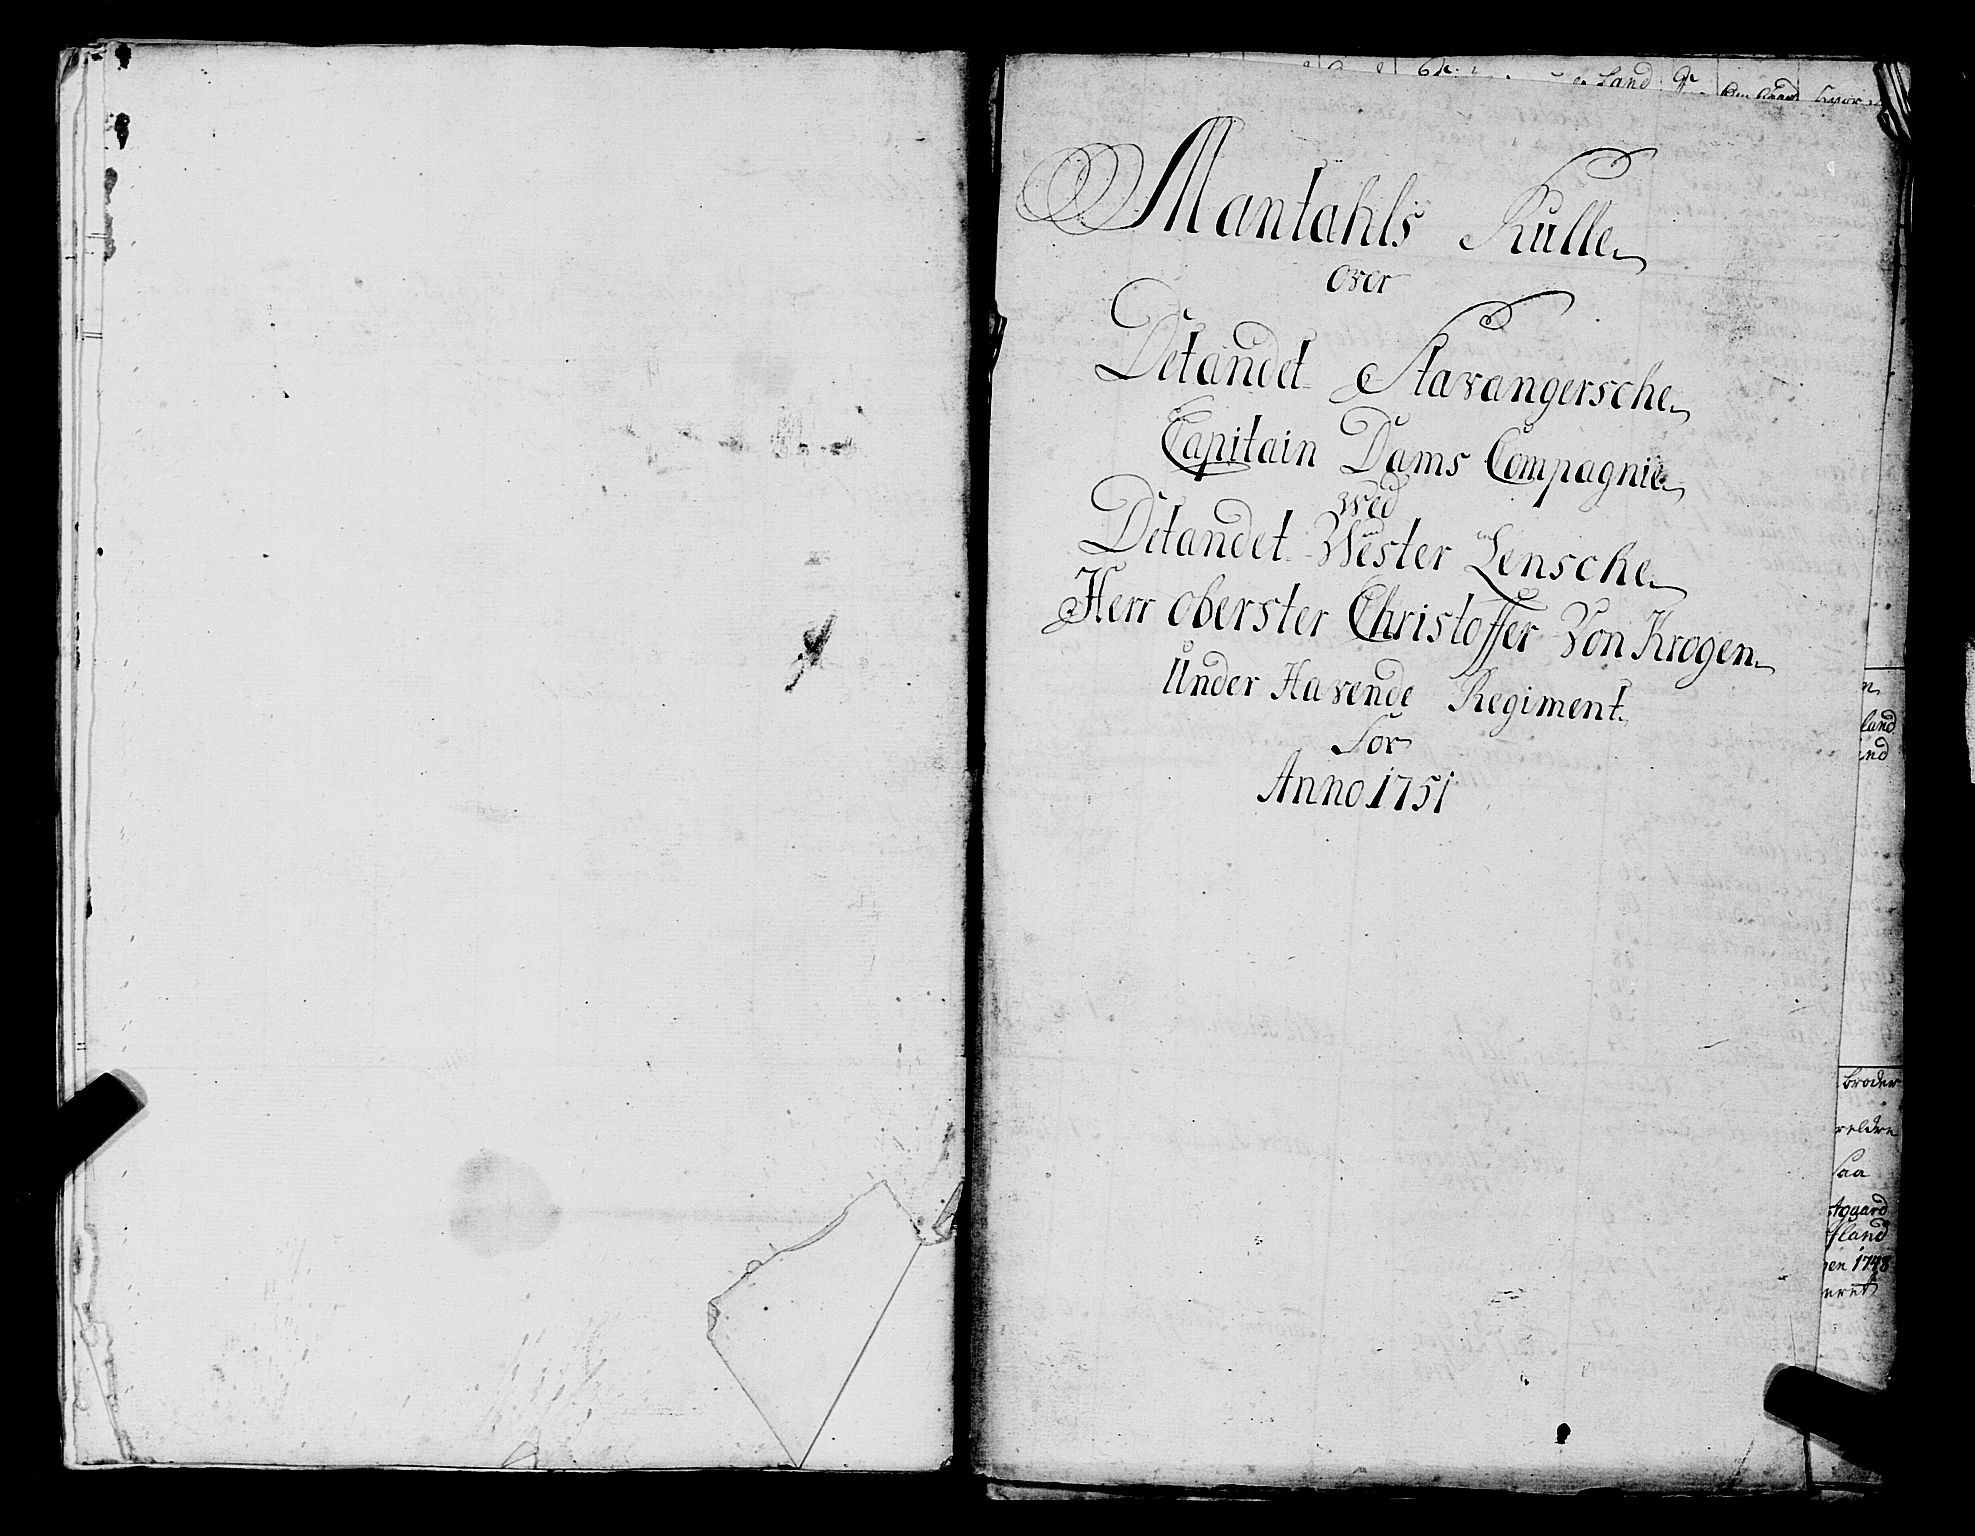 Mantahls Rulle
over
Det andet Stavangersche
Capitain Dams Compagnie
ved
Det andet Wester Lensche
Herr oberster Christoffer Von Krogen
Under Havende Regiment
For
Anno 1751
Land
land
broder
saa
fland
1748